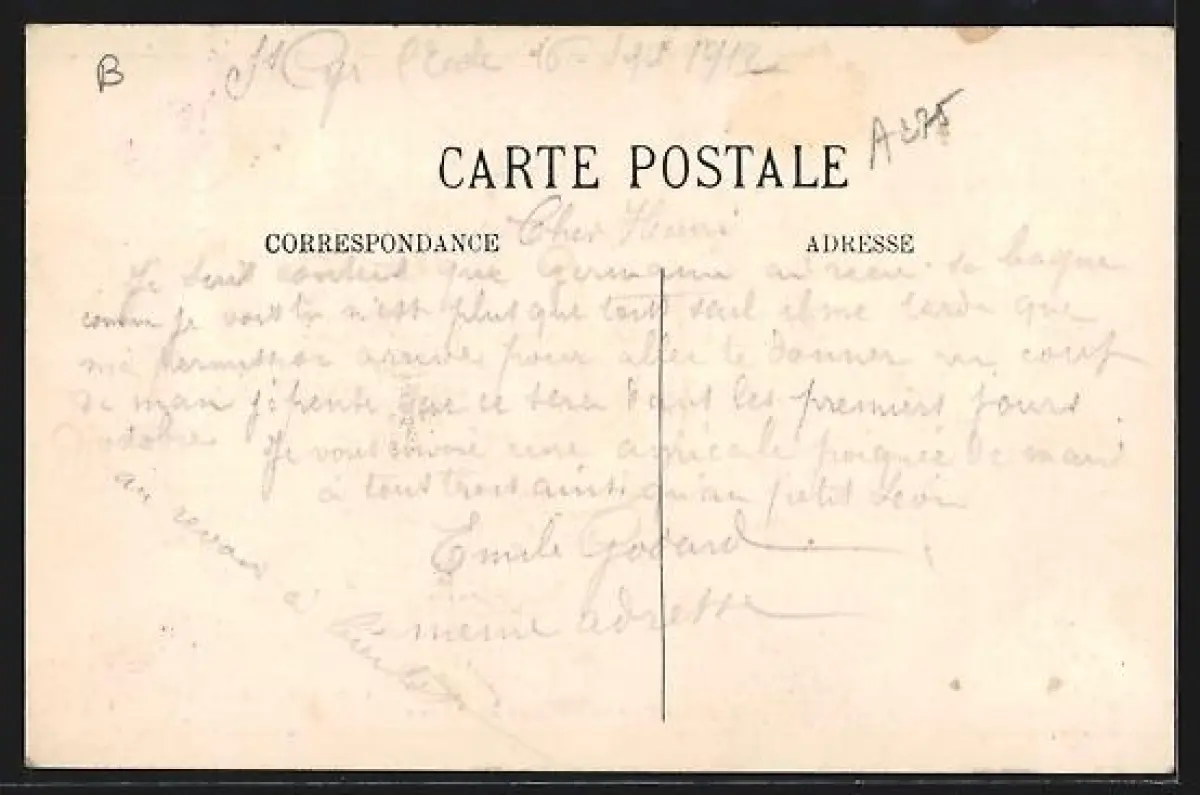 B
St Cyr l'Ecole 16 Sept 1912
A 275
CARTE POSTALE
Cher Henri
CORRESPONDANCE
ADRESSE
Je suis content que Germaine ai recu sa bague
comme je vois tu n'est plus que tout seul il me tarde que
ma permission arrive pour aller te donner un coup
de main je pense que ce sera dans les premiers jours
d'octobre Je vous envoie une amicale poignée de main
à tous trois ainsi qu'au petit Léon
Emile Godard
même adresse
au revoir à bientôt